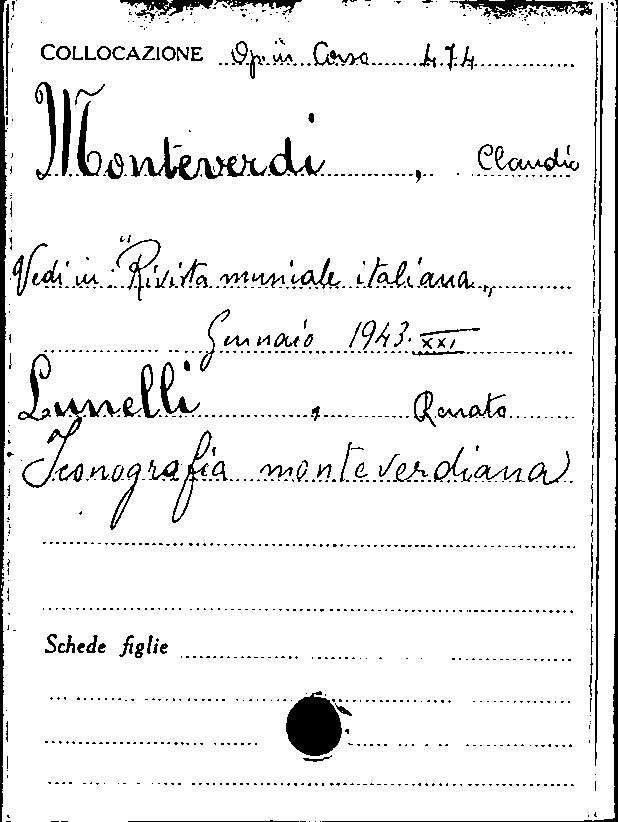 COLLOCAZIONE Op. in Corso 474
Monteverdi, Claudio
Vedi in: "Rivista musicale italiana„
Gennaio 1943. XXI
Lunelli, Renato
Iconografia monteverdiana
Schede figlie